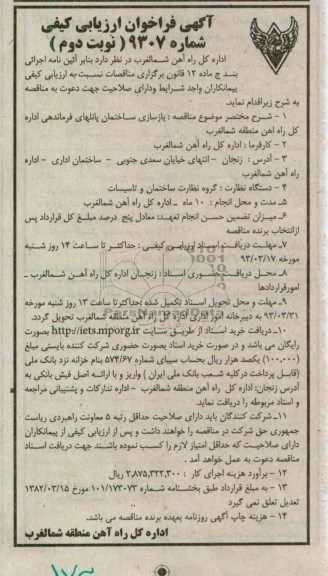 آگهی فراخوان ارزیابی کیفی
شماره ۹۳۰۷ ( نوبت دوم )
اداره کل راه آهن شمالغرب در نظر دارد بنابر آئین نامه اجرائی
بند ج ماده ۱۲ قانون برگزاری مناقصات نسبت به ارزیابی کیفی
پیمانکاران واجد شرایط ودارای صلاحیت جهت دعوت به مناقصه
به شرح زیراقدام نماید.
۱ - شرح مختصر موضوع مناقصه : بازسازی ساختمان پانلهای فرماندهی اداره
کل راه اهن منطقه شمالغرب
۲ - کارفرما : اداره کل راه آهن شمالغرب
۳ - آدرس : زنجان - انتهای خیابان سعدی جنوبی - ساختمان اداری - اداره
راه آهن شمالغرب
۴ - دستگاه نظارت : گروه نظارت ساختمان و تاسیسات
۵ـ مدت و محل انجام : ۱۰ ماه ـ اداره کل راه آهن شمالغرب
۶ـ میزان تضمین حسن انجام تعهد: معادل پنج درصد مبلغ کل قرارداد پس
ازانتخاب برنده مناقصه
۷ـ مهلت دریافت اسناد ارزیابی کیفی : حداکثر تا ساعت ۱۴ روز شنبه
مورخه ۹۳/۰۳/۱۷
۸ـ محل دریافت حضوری اسناد : زنجـان اداره کل راه آهـن شمالغرب ـ
امورقراردادها
۹ـ مهلت و محل تحویل اسناد تکمیل شده :حداکثر تا ساعت ۱۳ روز شنبه مورخه
۹۳/۰۳/۳۱ به دبیرخانه امور اداری اداره کل راه آهن منطقه شمالغرب تحویل گردد.
۱۰ـ دریافت خرید اسناد از طریق سایت http://iets.mporg.ir بصورت
رایگان می باشد و در صورت خرید اسناد بصورت حضوری شرکت کننده بایستی مبلغ
(۱۰۰,۰۰۰) یکصد هزار ریال بحساب سیبای شماره ۵۷۴/۶۷ بنام خزانه نزد بانک ملی
(قابل پرداخت درکلیه شعب بانک ملی ایران ) واریز و با ارائه اصل فیش بانکی به
آدرس زنجان: اداره کل راه آهن منطقه شمالغرب - اداره تدارکات و پشتیبانی مراجعه
و اسناد مربوطه را دریافت نماید.
۱۱ـ شرکت کنندگان باید دارای صلاحیت حداقل رتبه ۵ معاونت راهبردی ریاست
جمهوری حق شرکت در مناقصه را خواهند داشت و پس از ارزیابی کیفی از پیمانکاران
دارای صلاحیت که حداقل امتیاز لازم را کسب نموده باشند، جهت دریافت اسناد
مناقصه دعوت به عمل خواهد آمد .
۱۲ - برآورد هزینه اجرای کار : ۲,۸۷۵,۳۲۲,۳۰۰ ریال
۱۳ - به مبلغ قرارداد طبق بخشنامه شماره ۱۰۱/۱۷۳۰۷۳ مورخ ۱۳۸۲/۰۳/۱۵
تعدیل تعلق نمی گیرد
۱۴ - هزینه چاپ آگهی روزنامه بعهده برنده مناقصه می باشد.
اداره کل راه آهن منطقه شمالغرب